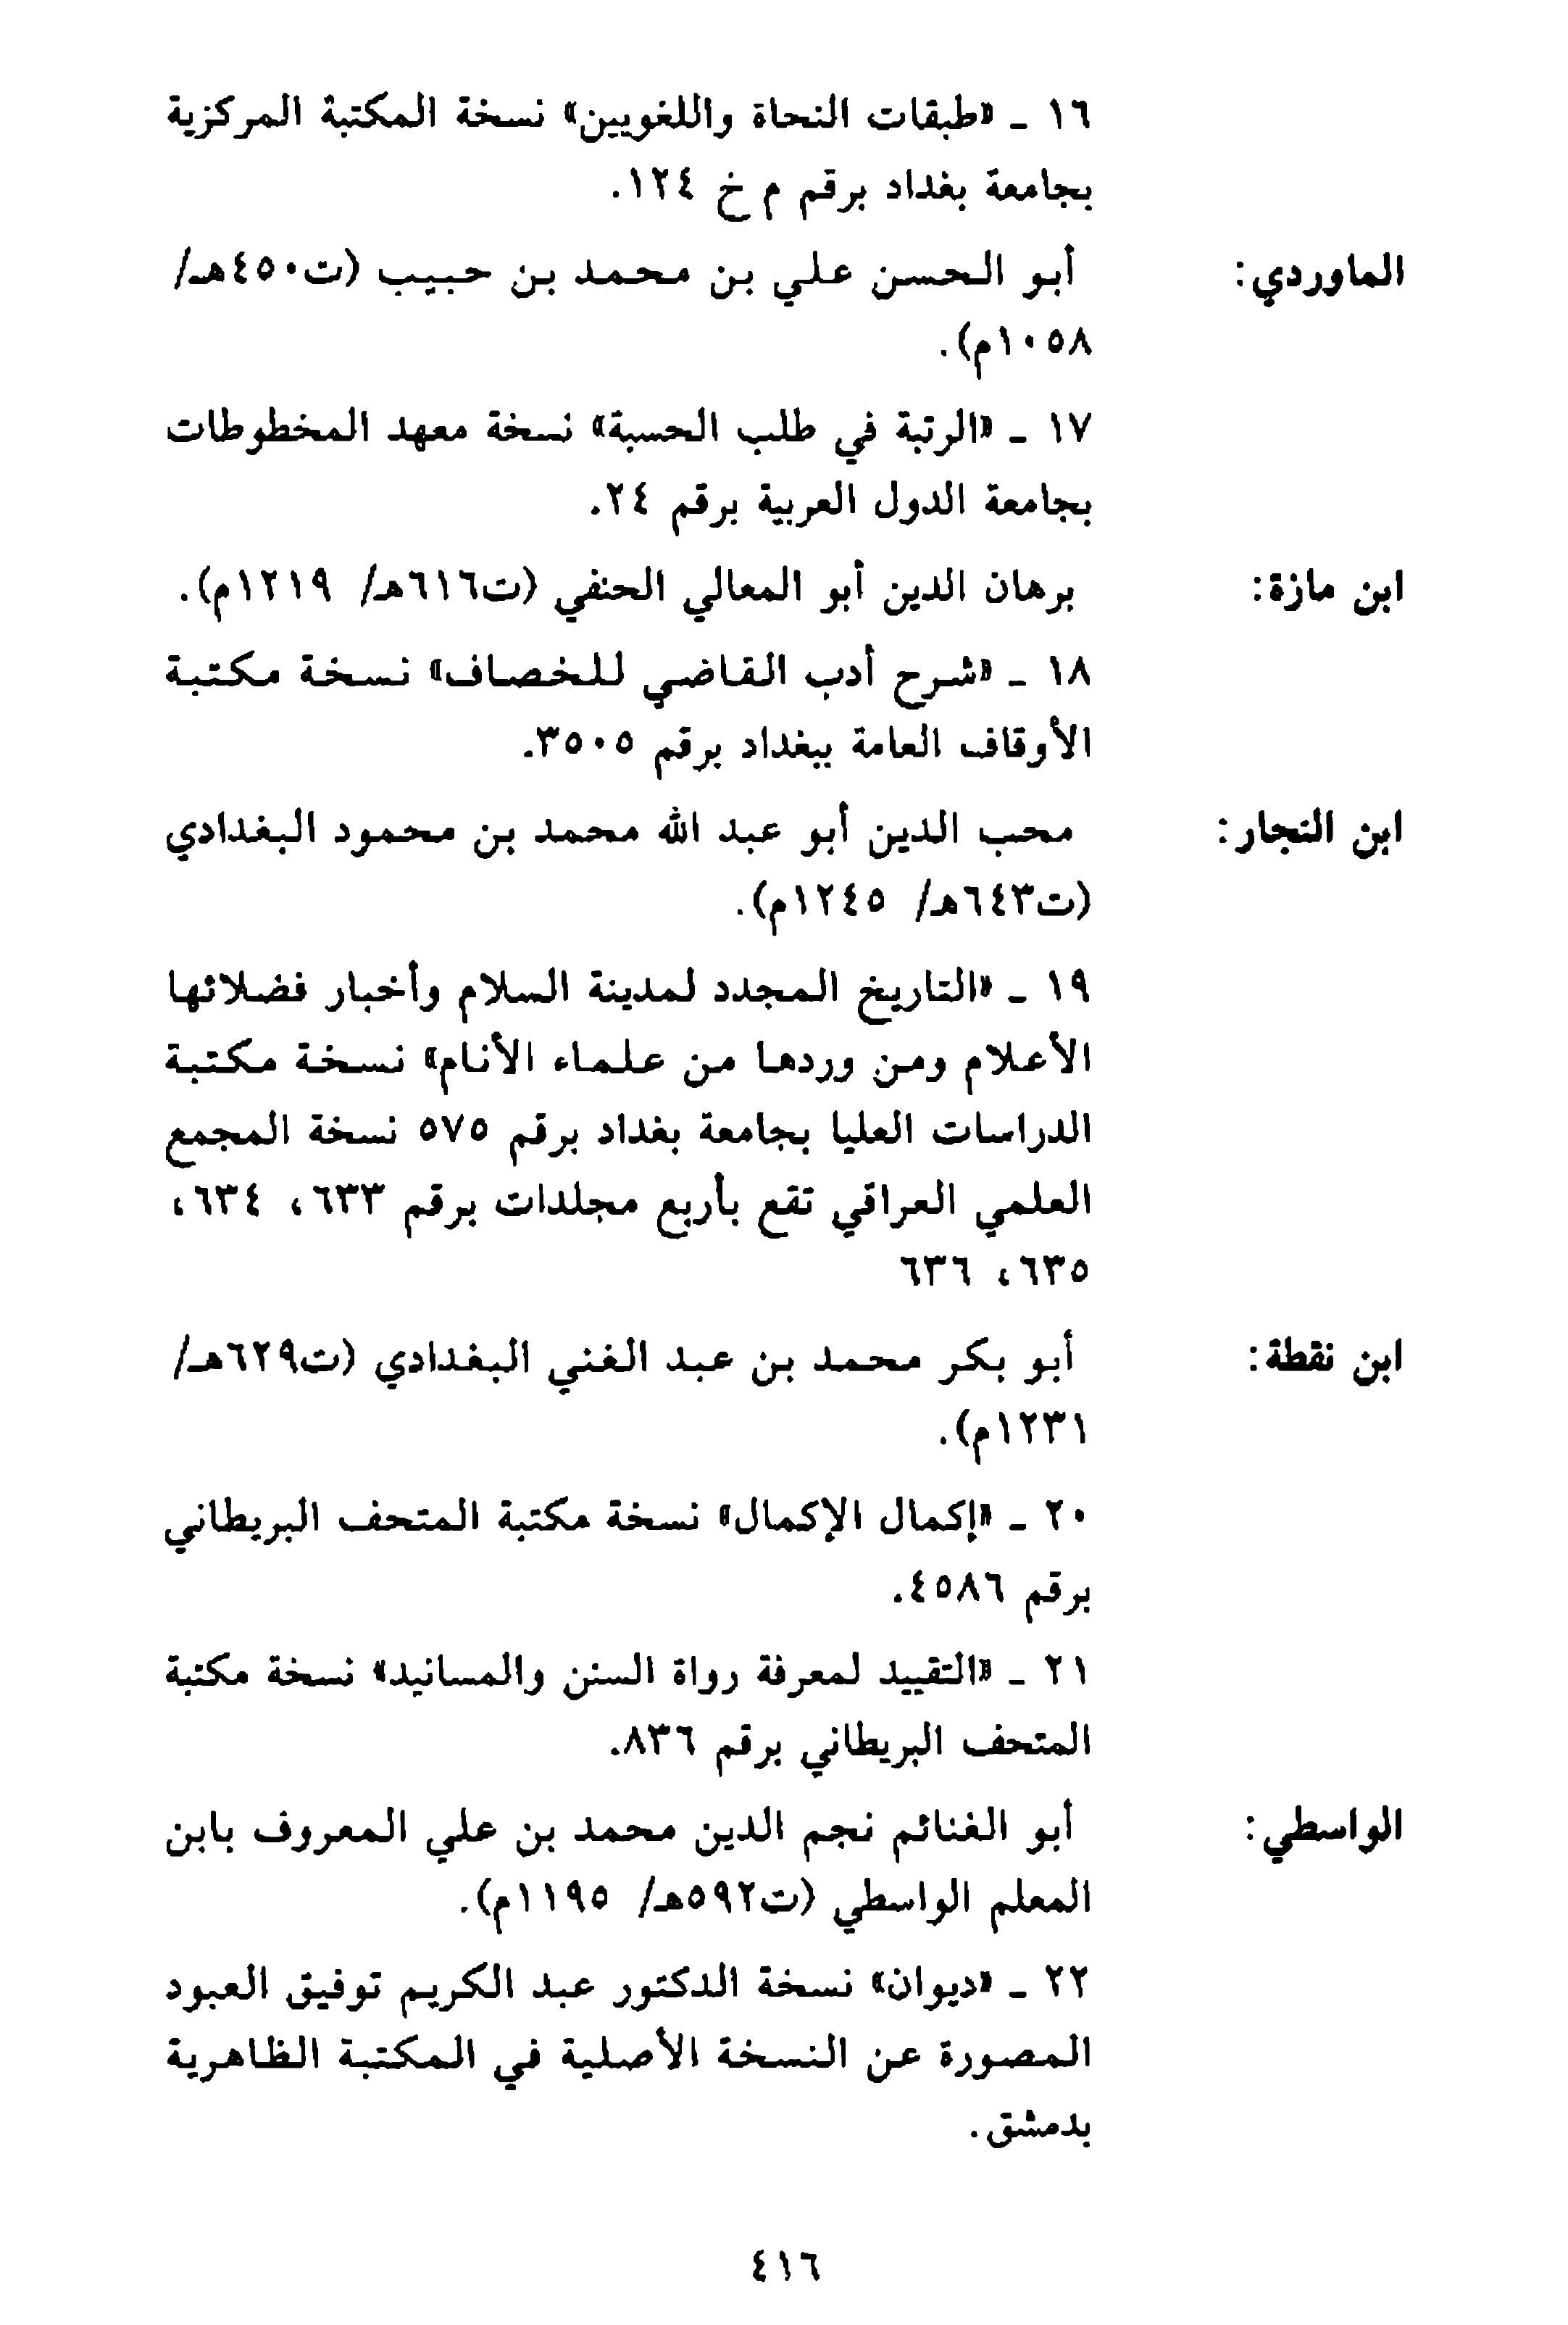 ١٦ ـ «طبقات النحاة واللغويين» نسخة المكتبة المركزية
بجامعة بغداد برقم م خ ١٢٤.
الماوردي: أبو الحسن علي بن محمد بن حبيب (ت٤٥٠هـ/
١٠٥٨م).
١٧ ـ «الرتبة في طلب الحسبة» نسخة معهد المخطوطات
بجامعة الدول العربية برقم ٢٤.
ابن مازة: برهان الدين أبو المعالي الحنفي (ت٦١٦هـ/ ١٢١٩م).
١٨ ـ «شرح أدب القاضي للخصاف» نسخة مكتبة
الأوقاف العامة ببغداد برقم ٣٥٠٥.
ابن النجار: محب الدين أبو عبد الله محمد بن محمود البغدادي
(ت٦٤٣هـ/ ١٢٤٥م).
١٩ ـ «التاريخ المجدد لمدينة السلام وأخبار فضلائها
الأعلام ومن وردها من علماء الأنام» نسخة مكتبة
الدراسات العليا بجامعة بغداد برقم ٥٧٥ نسخة المجمع
العلمي العراقي تقع بأربع مجلدات برقم ٦٣٣، ٦٣٤،
٦٣٥، ٦٣٦
ابن نقطة: أبو بكر محمد بن عبد الغني البغدادي (ت٦٢٩هـ/
١٢٣١م).
٢٠ ـ «إكمال الإكمال» نسخة مكتبة المتحف البريطاني
برقم ٤٥٨٦.
٢١ ـ «التقييد لمعرفة رواة السنن والمسانيد» نسخة مكتبة
المتحف البريطاني برقم ٨٣٦.
الواسطي: أبو الغنائم نجم الدين محمد بن علي المعروف بابن
المعلم الواسطي (ت٥٩٢هـ/ ١١٩٥م).
٢٢ ـ «ديوان» نسخة الدكتور عبد الكريم توفيق العبود
المصورة عن النسخة الأصلية في المكتبة الظاهرية
بدمشق.
٤١٦